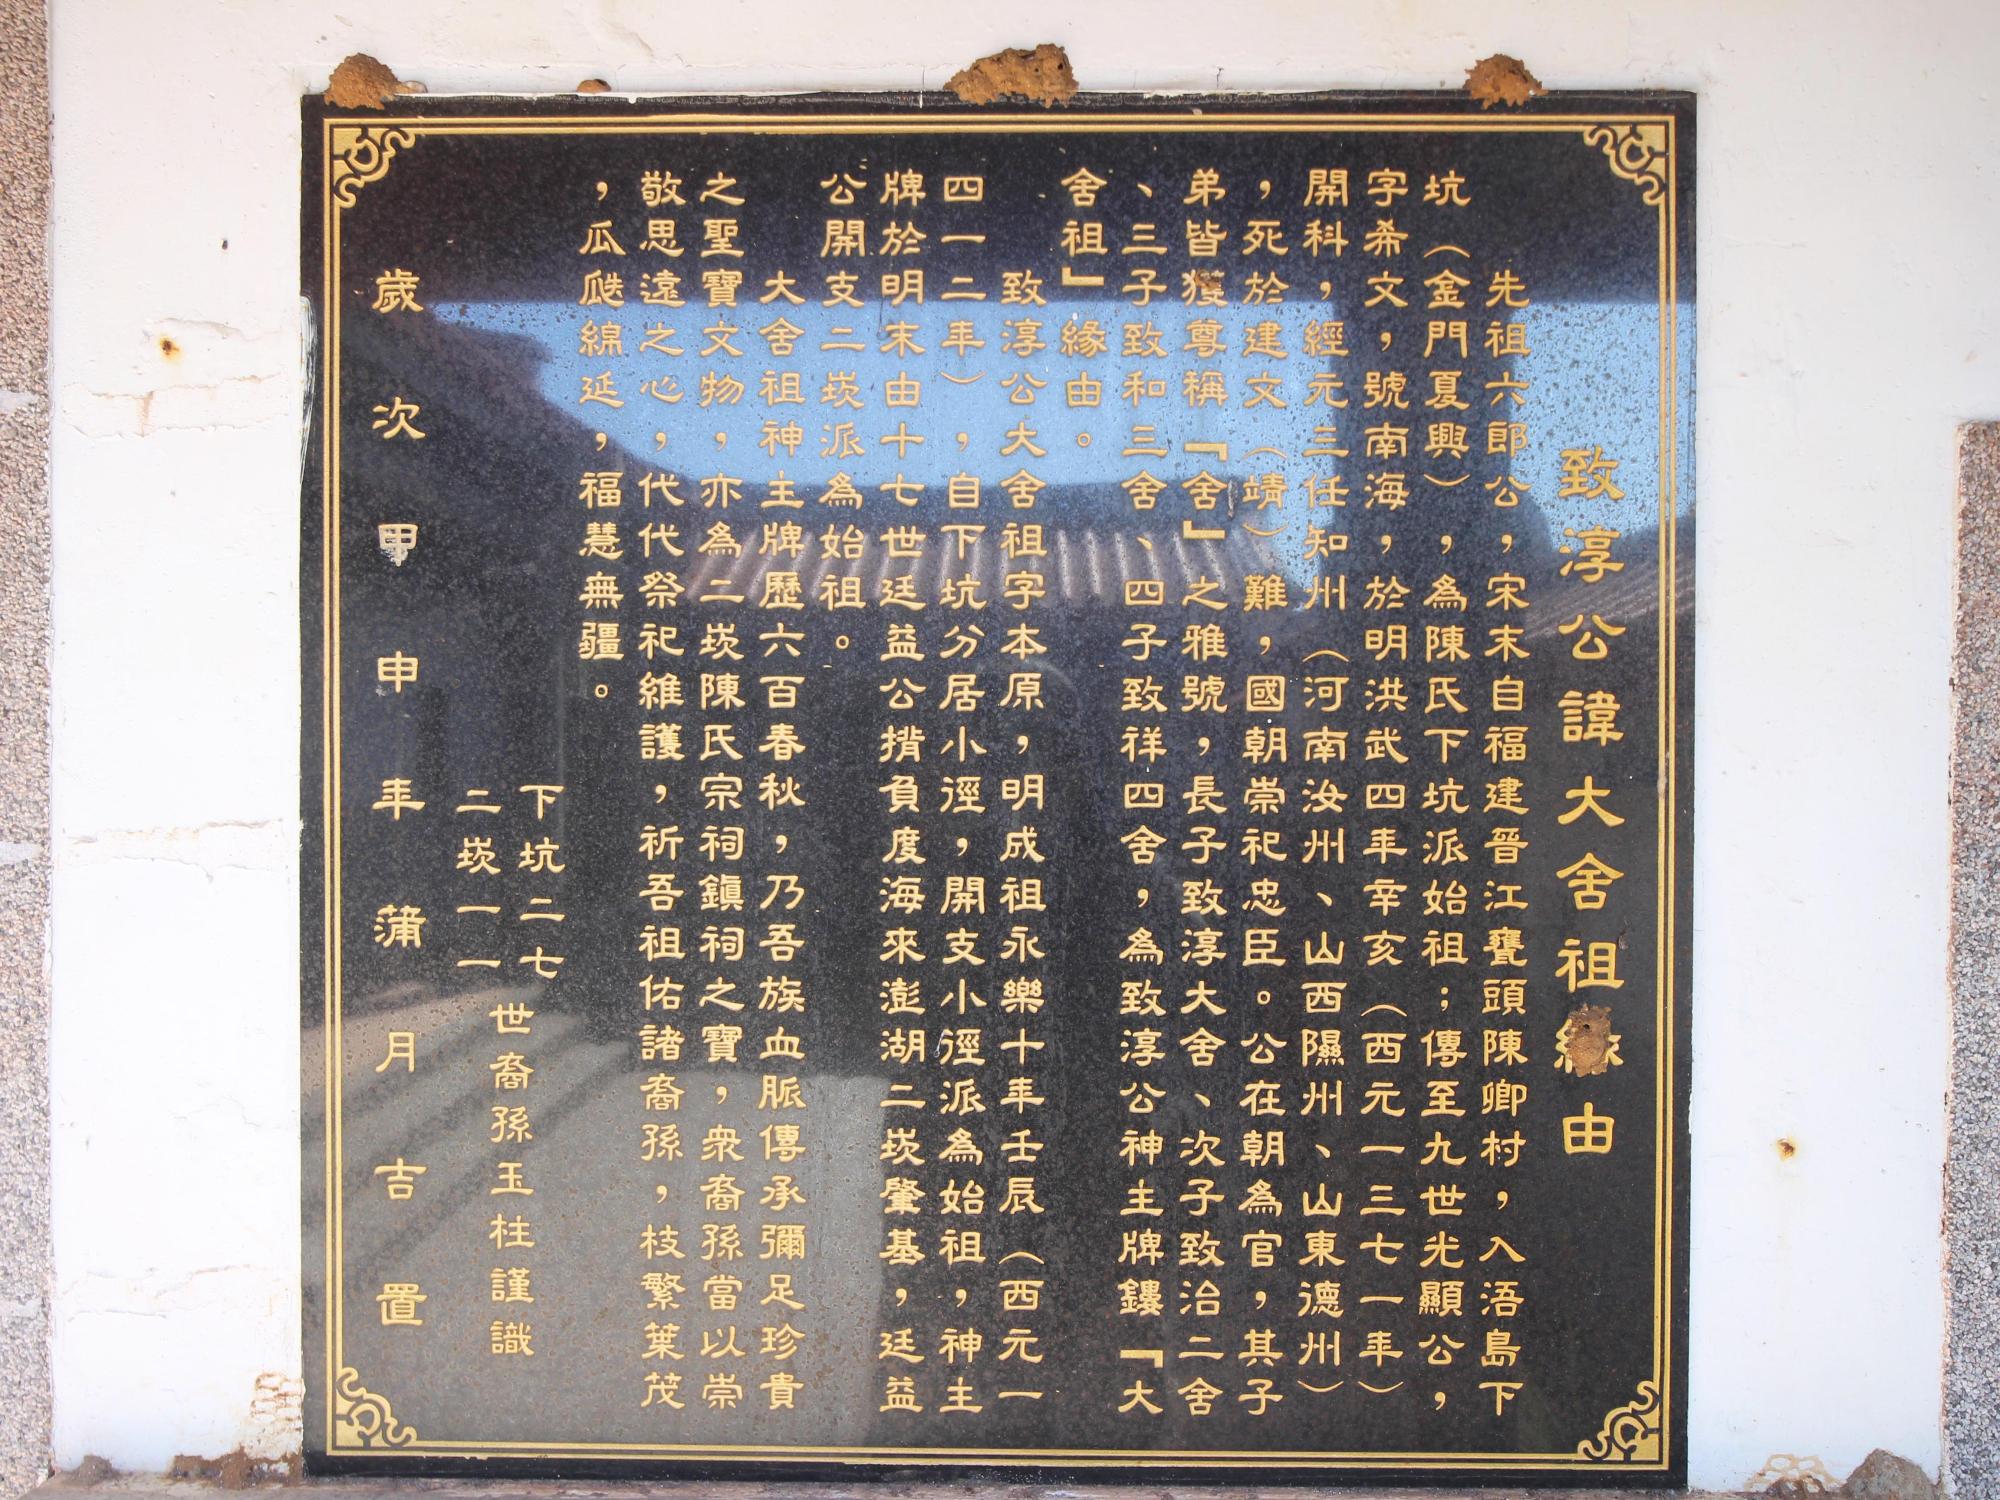 致淳公諱大舍祖緣由
先祖六郎公，宋末自福建晉江甕頭陳卿村，入浯島下
坑（金門夏興），為陳氏下坑派始祖；傳至九世光顯公，
字希文，號南海，於明洪武四年辛亥（西元一三七一年）
開科，經元三任知州（河南汝州、山西隰州、山東德州）
，死於建文（靖）難，國朝崇祀忠臣。公在朝為官，其子
弟皆獲尊稱「舍」之雅號，長子致淳大舍、次子致治二舍
、三子致和三舍、四子致祥四舍，為致淳公神主牌鏤「大
舍祖」緣由。
致淳公大舍祖字本原，明成祖永樂十年壬辰（西元一
四一二年），自下坑分居小徑，開支小徑派為始祖，神主
牌於明末由十七世廷益公揹負度海來澎湖二崁肇基，廷益
公開支二崁派為始祖。
大舍祖神主牌歷六百春秋，乃吾族血脈傳承彌足珍貴
之聖寶文物，亦為二崁陳氏宗祠鎮祠之寶，衆裔孫當以崇
敬思遠之心，代代祭祀維護，祈吾祖佑諸裔孫，枝繁葉茂
，瓜瓞綿延，福慧無疆。
下坑二七
二崁一一
世裔孫玉柱謹識
歲次甲申年蒲月吉置